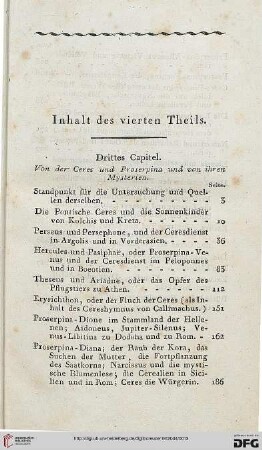 Inhalt des vierten Theils.
Drittes Capitel.
Von der Ceres und Proserpina und von ihren
Mysterien.
Seite.
Standpunkt für die Untersuchung und Quel-
len derselben. - - - - - - - 3
Die Pontische Ceres und die Sonnenkinder
von Kolchis und Kreta. - - - - - 19
Perseus und Persephone, und der Ceresdienst
in Argolis und in Vorderasien. - - - 36
Hercules und Pasiphae, oder Proserpina-Ve-
nus und der Ceresdienst im Peloponnes
und in Boeotien. - - - - - - 83
Theseus und Ariadne, oder das Opfer des
Pflugstiers zu Athen. - - - - - 112
Erysichthon, oder der Fluch der Ceres (als In-
halt des Cereshymnus von Callimachus.) 151
Proserpina-Dione im Stammland der Helle-
nen; Aidoneus, Jupiter-Silenus; Ve-
nus-Libitina zu Dodona und zu Rom. - 162
Proserpina-Diana; der Raub der Kora, das
Suchen der Mutter, die Fortpflanzung
des Saatkorns; Narcissus und die mysti-
sche Blumenlese; die Cerealien in Sici-
lien und in Rom; Ceres die Würgerin. 186